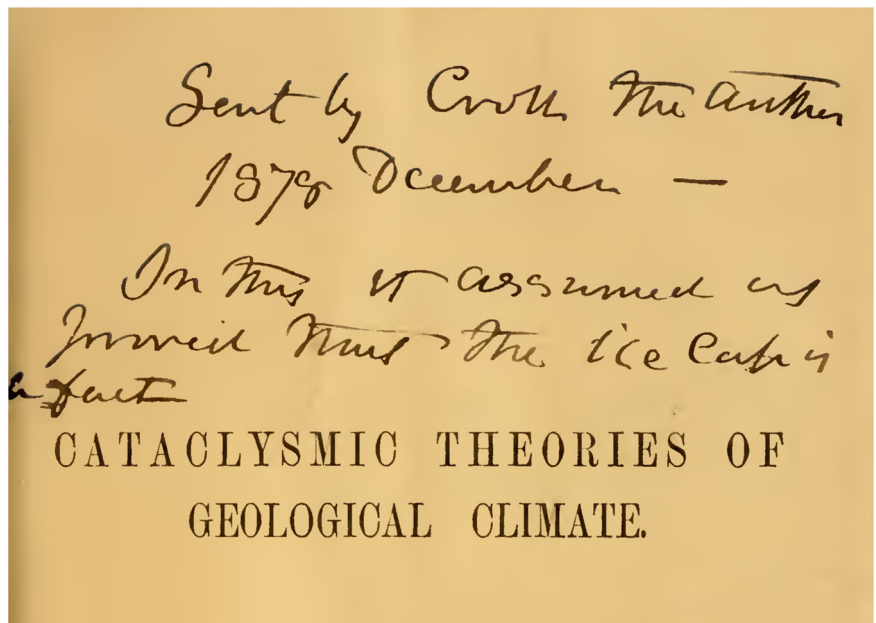 Sent by Croll the Author
1878 December —
In this it assumed as
proved that the ice Cap is
a fact
CATACLYSMIC THEORIES OF
GEOLOGICAL CLIMATE.